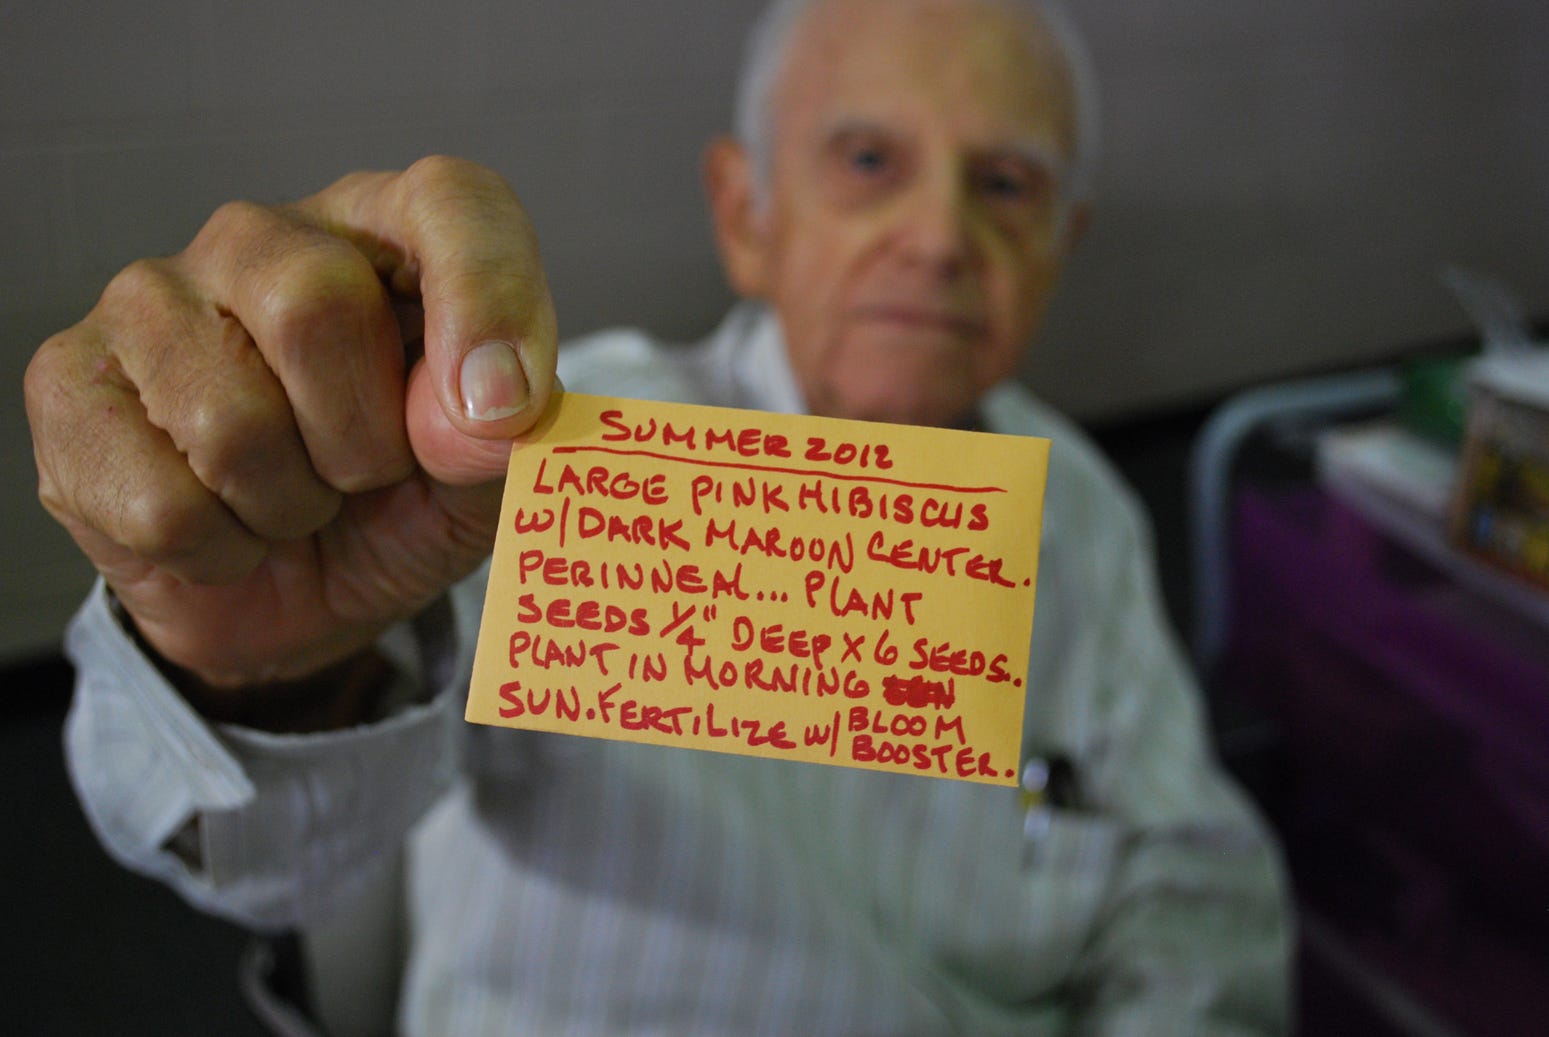 SUMMER 2012
LARGE PINK HIBISCUS
W/DARK MAROON CENTER.
PERINNEAL... PLANT
SEEDS 1/4" DEEP X 6 SEEDS..
PLANT IN MORNING
SUN. FERTILIZE W/ BLOOM
BOOSTER.